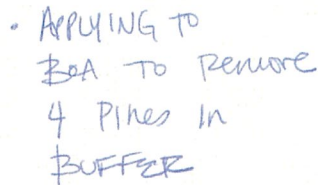 • APPLYING TO
BOA TO Remove
4 Pines In
BUFFER